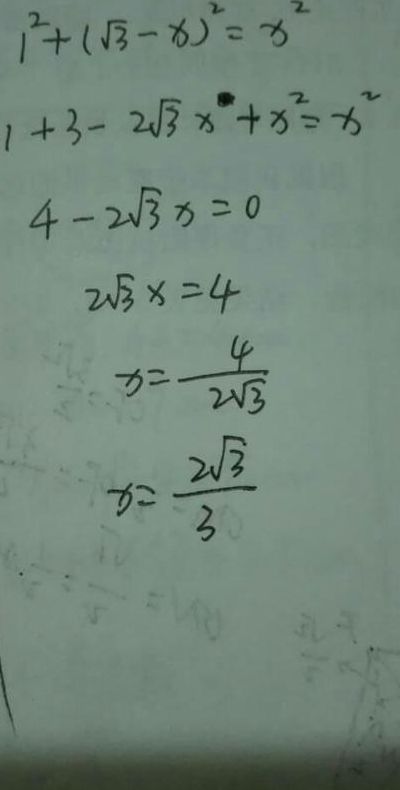 1² + (√3 - x)² = x²
1 + 3 - 2√3 x + x² = x²
4 - 2√3 x = 0
2√3 x = 4
x = 4/(2√3)
x = 2√3/3